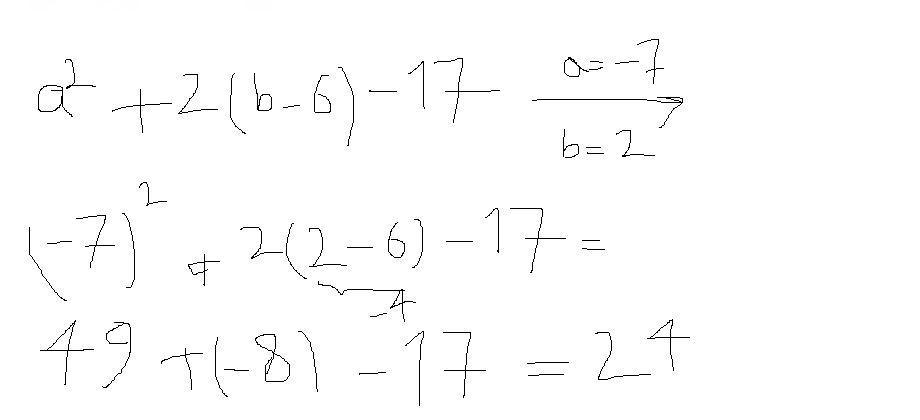 a² + 2(b - 6) - 17 a = -7
b = 2
(-7)² + 2(2 - 6) - 17 =
-4
49 + (-8) - 17 = 24